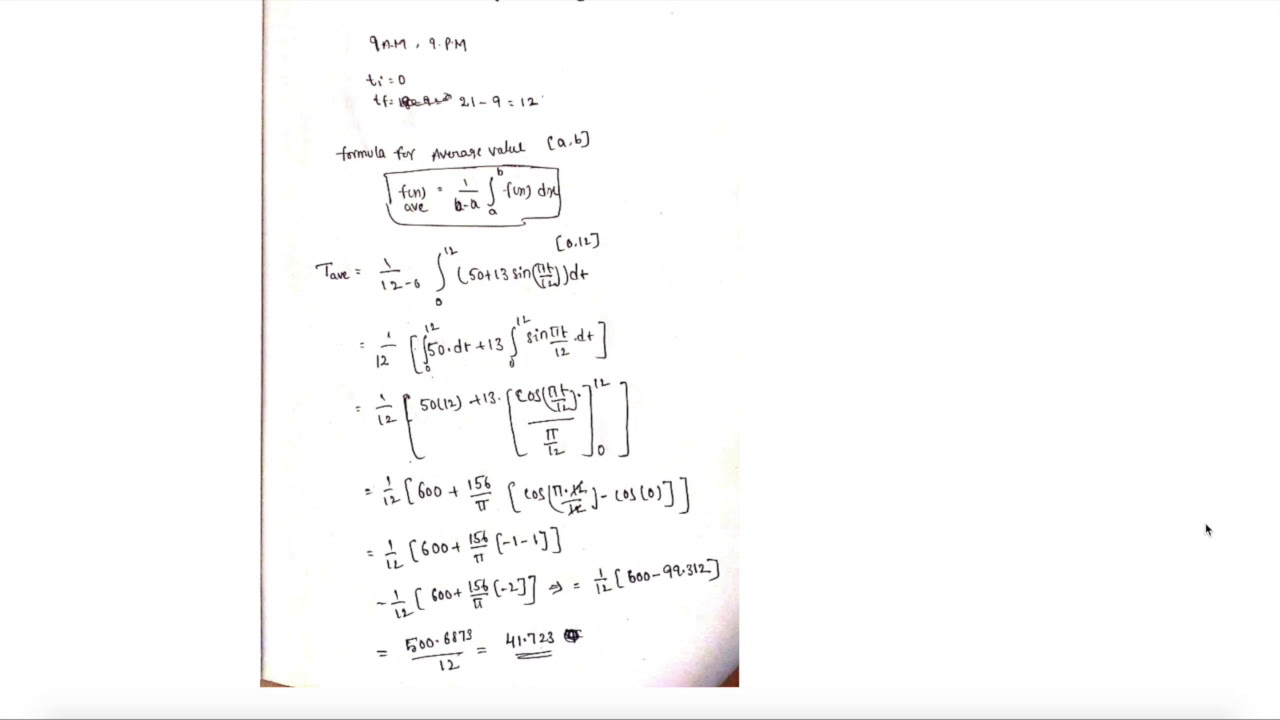 9 A.M, 9.P.M
ti = 0
tf = 21 - 9 = 12
formula for Average value [a,b]
f(n) ave = 1/b-a ∫ₐᵇ f(n) dx
[0,12]
Tave = 1/12-0 ∫₀¹² (50+13 sin(πt/12)) dt
= 1/12 [∫₀¹² 50.dt + 13 ∫₀¹² sin πt/12 .dt]
= 1/12 [50(12) + 13. [cos(πt/12). / π/12]₀¹²]
= 1/12 [600 + 156/π [cos(π.12/12) - cos(0)]]
= 1/12 [600 + 156/π [-1-1]]
- 1/12 [600 + 156/π [-2]] ⇒ = 1/12 [600 - 99.312]
= 500.6873/12 = 41.723